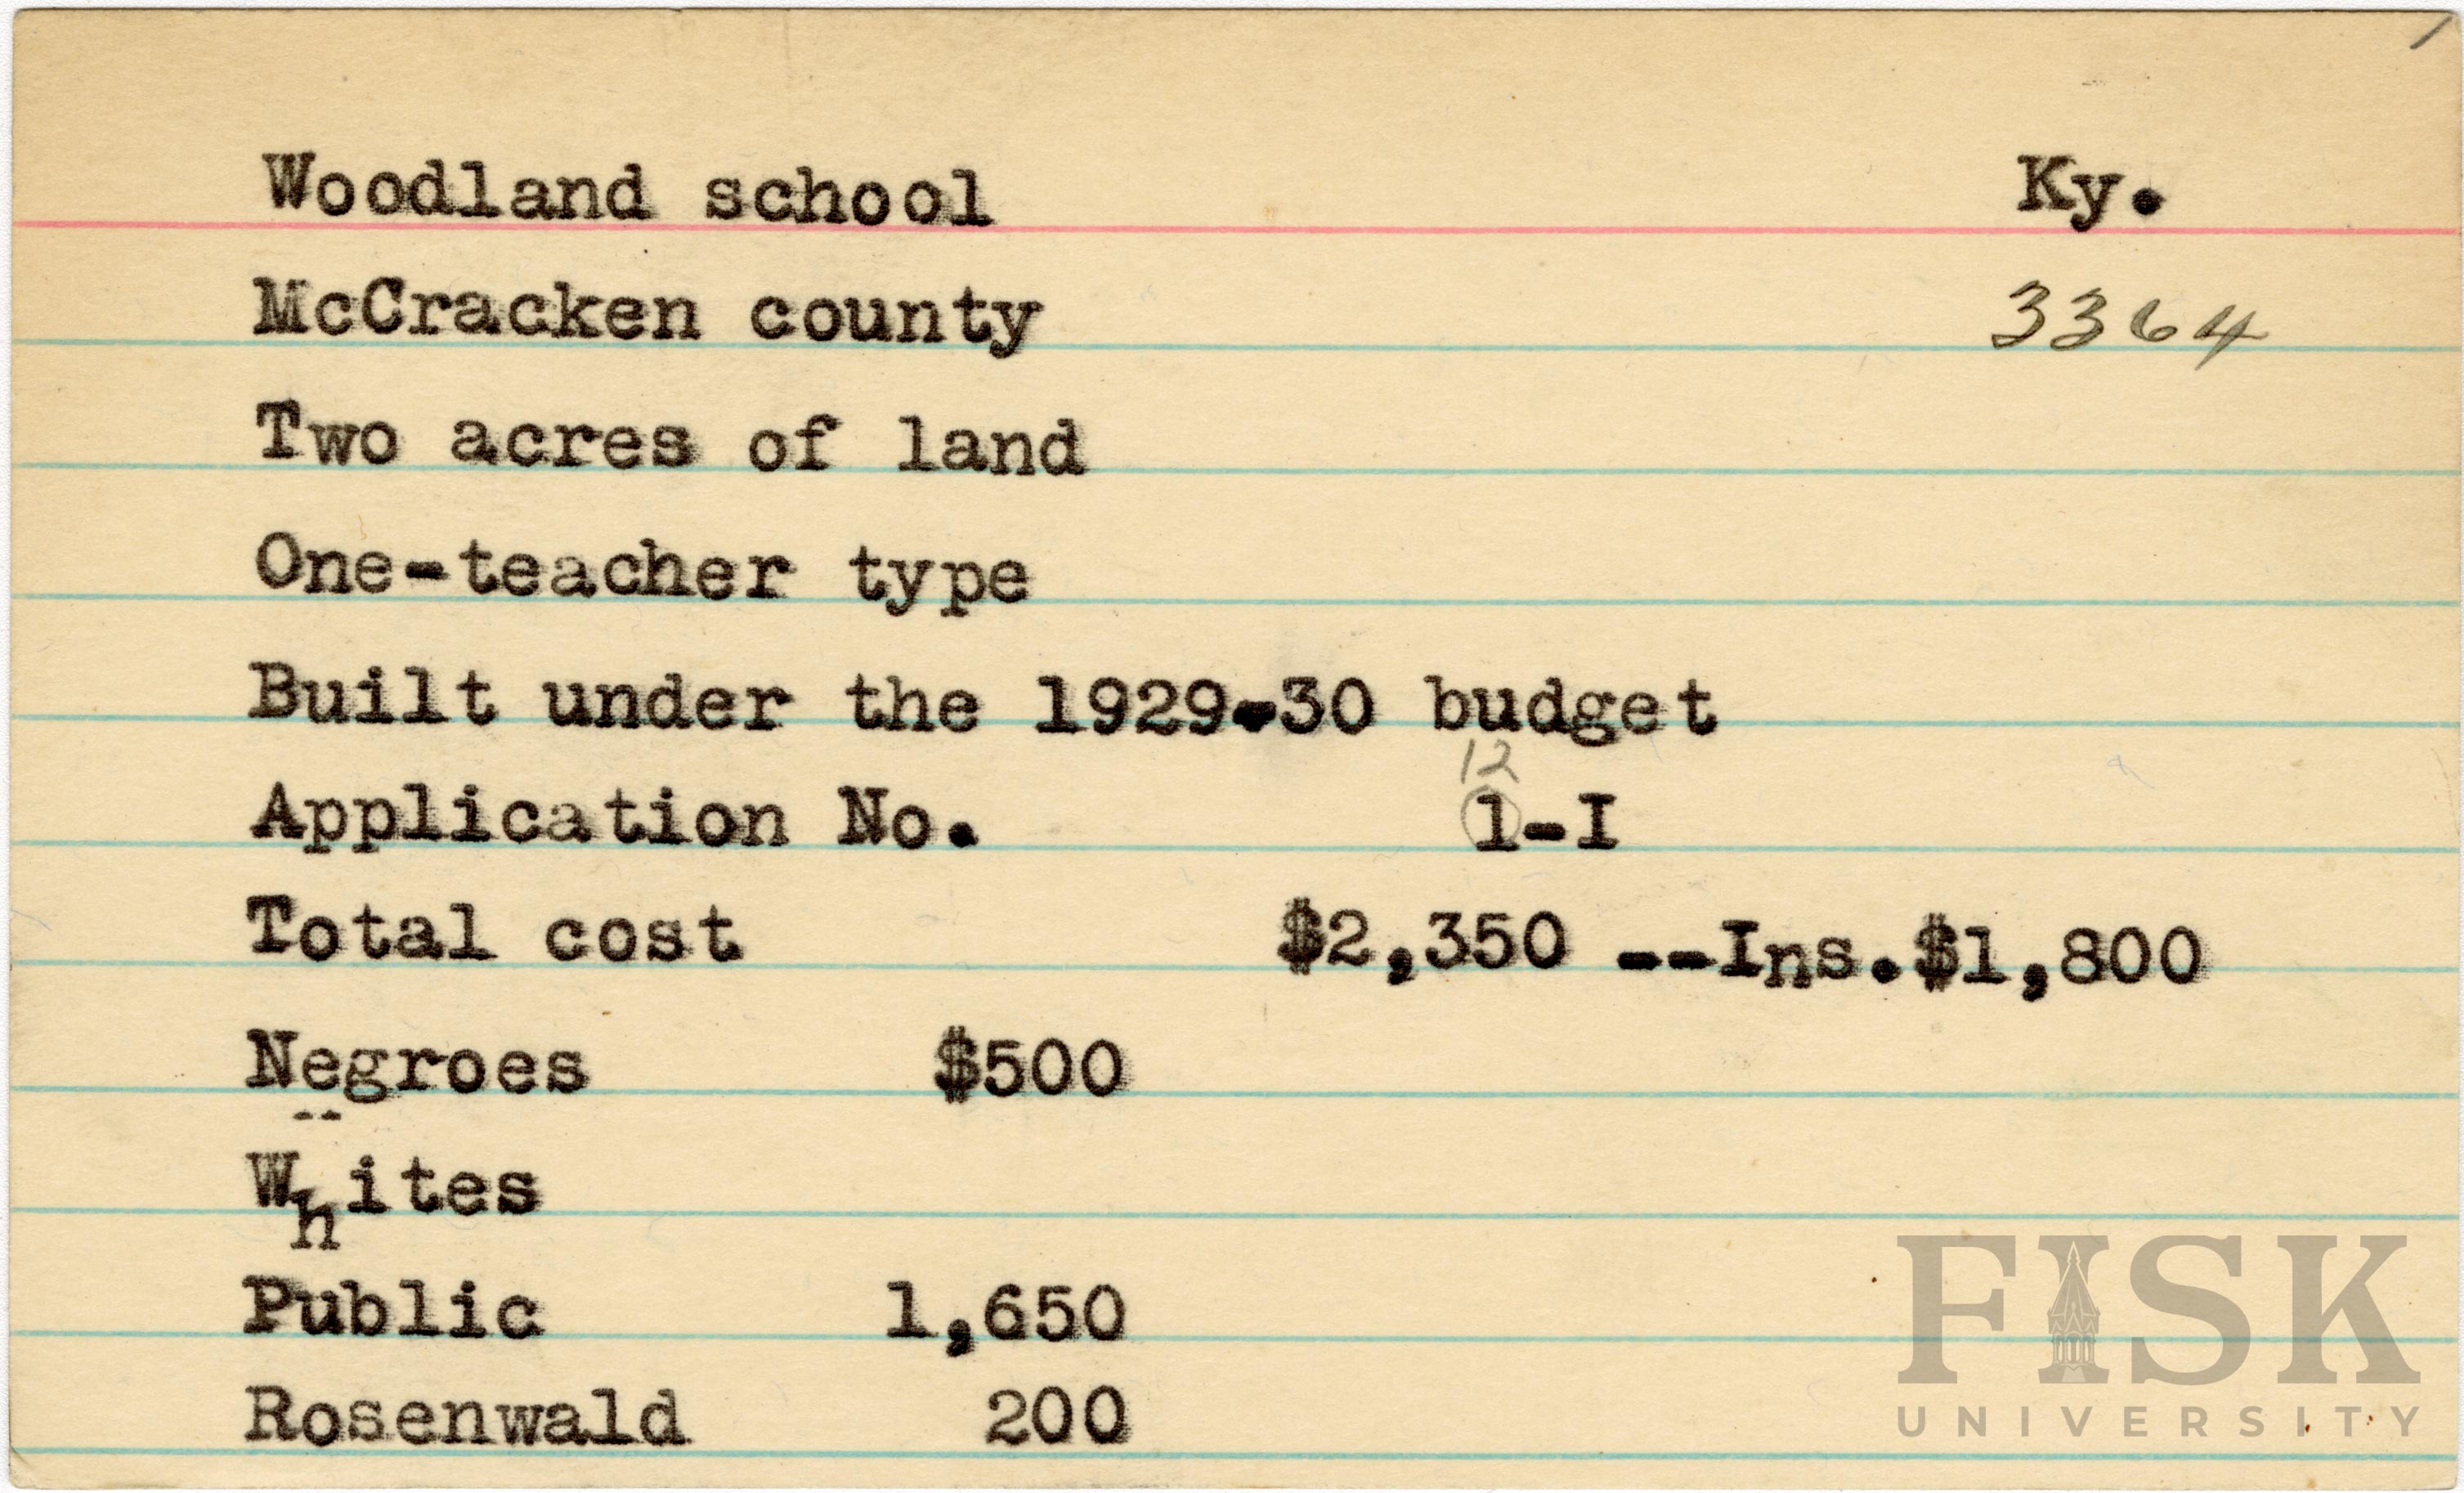 Woodland school Ky.
McCracken county 3364
Two acres of land
One-teacher type
Built under the 1929-30 budget
12
Application No. 1-I
Total cost $2,350 --Ins.$1,800
Negroes $500
--
Whites
Public 1,650
Rosenwald 200
FISK
UNIVERSITY